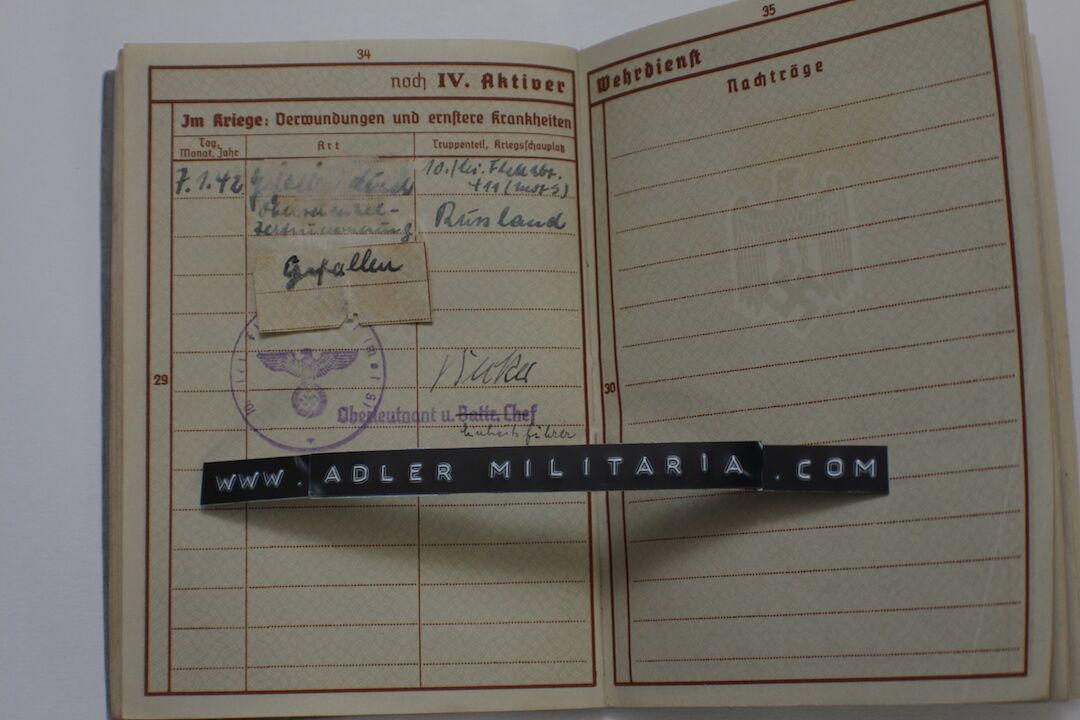 34
noch IV. Aktiver
Im Kriege: Verwundungen und ernstere Krankheiten
Tag, Monat, Jahr
Art
Truppenteil, Kriegsschauplatz
7.1.42
durch
Oberschenkel-
zertrümmerung
Russland
Gefallen
29
Oberleutnant u. Battr. Chef
Einheitsführer
35
Wehrdienst
Nachträge
30
WWW. ADLER MILITARIA .COM